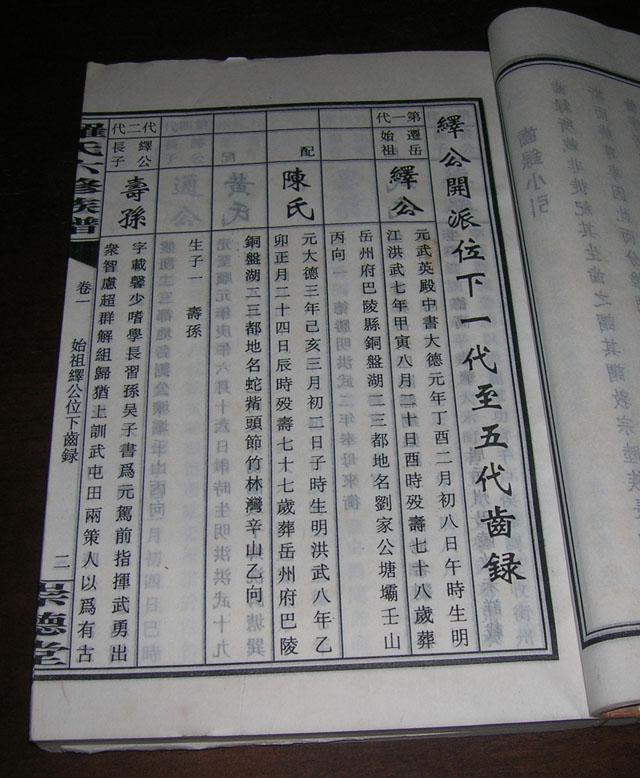 繹公開派位下一代至五代齒錄
第一代
遷岳始祖
繹公
元武英殿中書大德元年丁酉二月初八日午時生明
江洪武七年甲寅八月二十日酉時歿壽七十八歲葬
岳州府巴陵縣銅盤湖二三都地名劉家公塘壩壬山
丙向
配
陳氏
元大德三年己亥三月初二日子時生明洪武八年乙
卯正月二十四日辰時歿壽七十七歲葬岳州府巴陵
銅盤湖二三都地名蛇觜頭節竹林灣辛山乙向
生子一 壽孫
二代
繹公長子
壽孫
字載馨少嗜學長習孫吴子書爲元駕前指揮武勇出
衆智慮超群解組歸猶上訓武屯田兩策人以爲有古
羅氏六修族譜
卷一
始祖繹公位下齒錄
二
齒錄小引